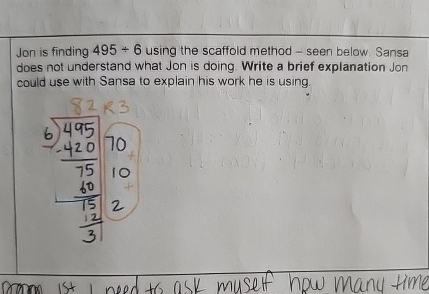 Jon is finding 495 ÷ 6 using the scaffold method – seen below. Sansa
does not understand what Jon is doing. Write a brief explanation Jon
could use with Sansa to explain his work he is using.
82 R3
6)495
-420 70
+
75 10
60 +
15 2
12
3
1st I need to ask muself how many time